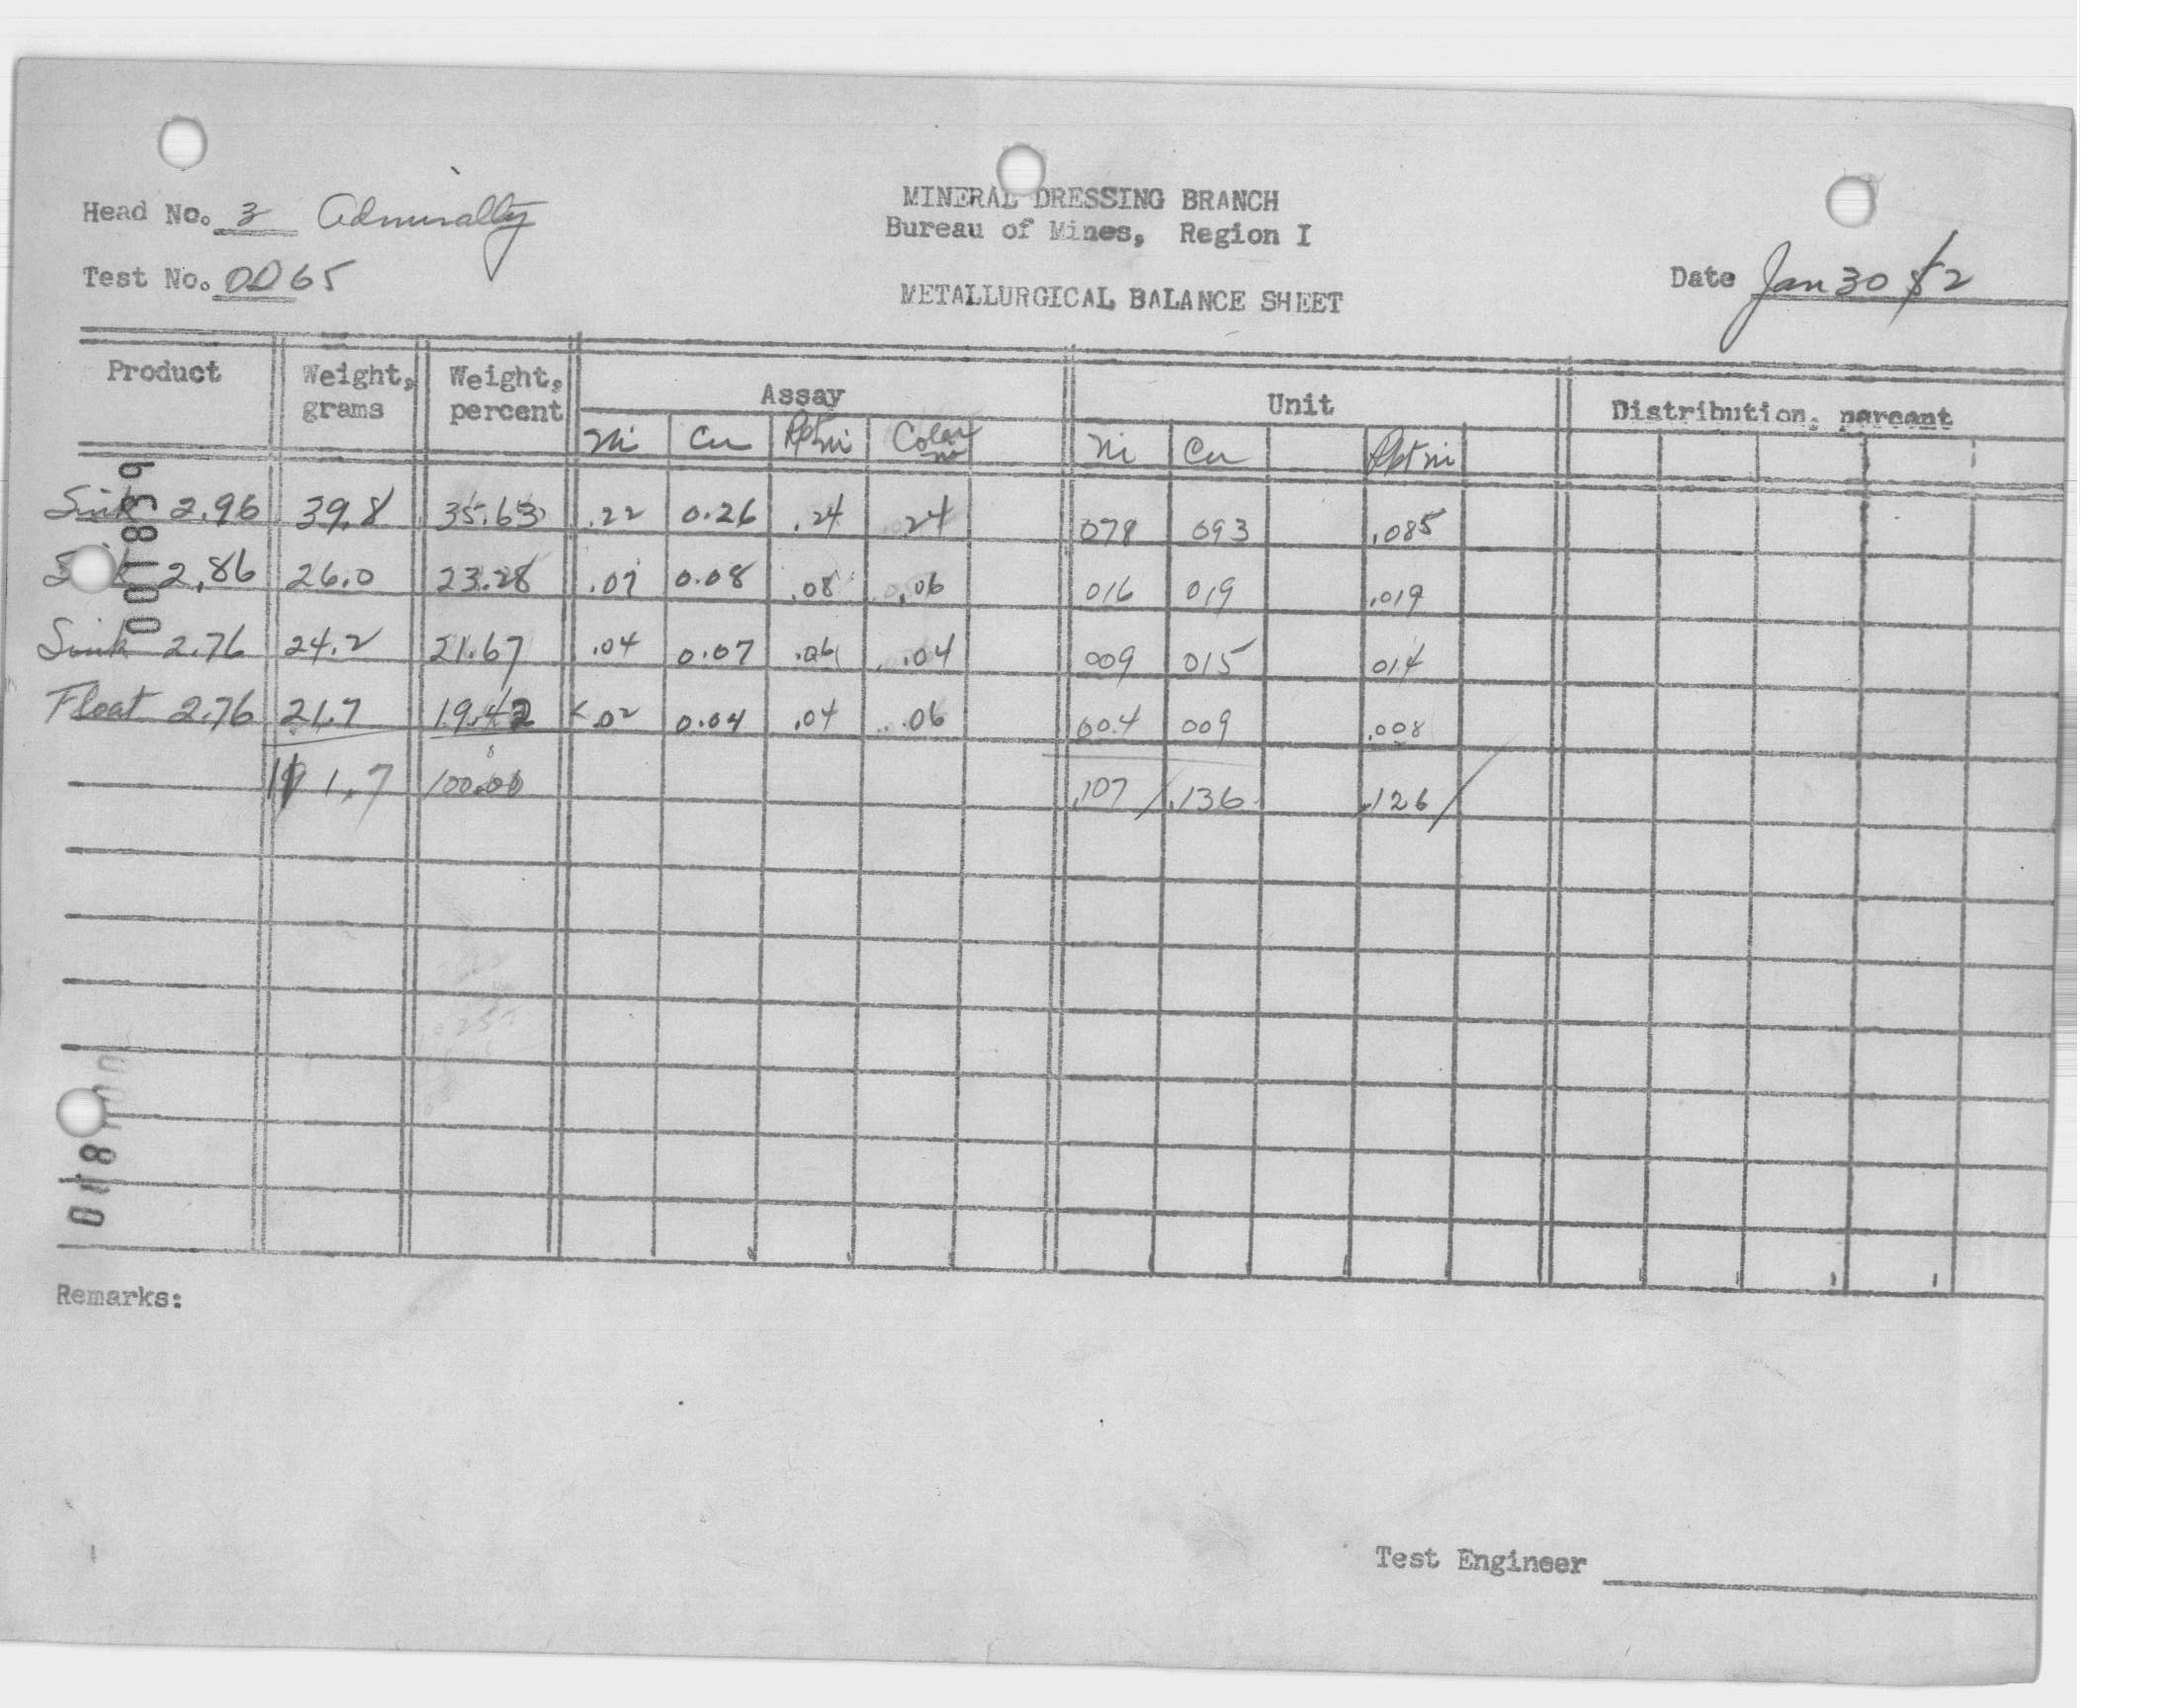 MINERAL DRESSING BRANCH
Head No. 3 Admiralty
Bureau of Mines, Region I
Test No. DD65
METALLURGICAL BALANCE SHEET
Date Jan 30 52
Product Weight, grams Weight, percent Assay Unit Distribution, percent
Ni Cu Rpt Ni Ni Cu Rpt Ni
Sink 2.96 39.8 35.63 .22 0.26 .24 .24 078 093 .085
2.86 26.0 23.28 .07 0.08 .08 .06 016 019 .019
Sink 2.76 24.2 21.67 .04 0.07 .06 .04 009 015 014
Float 2.76 21.7 19.42 <.02 0.04 .04 .06 004 009 .008
111.7 100.00 .107 .136 .126
Remarks:
Test Engineer
0018